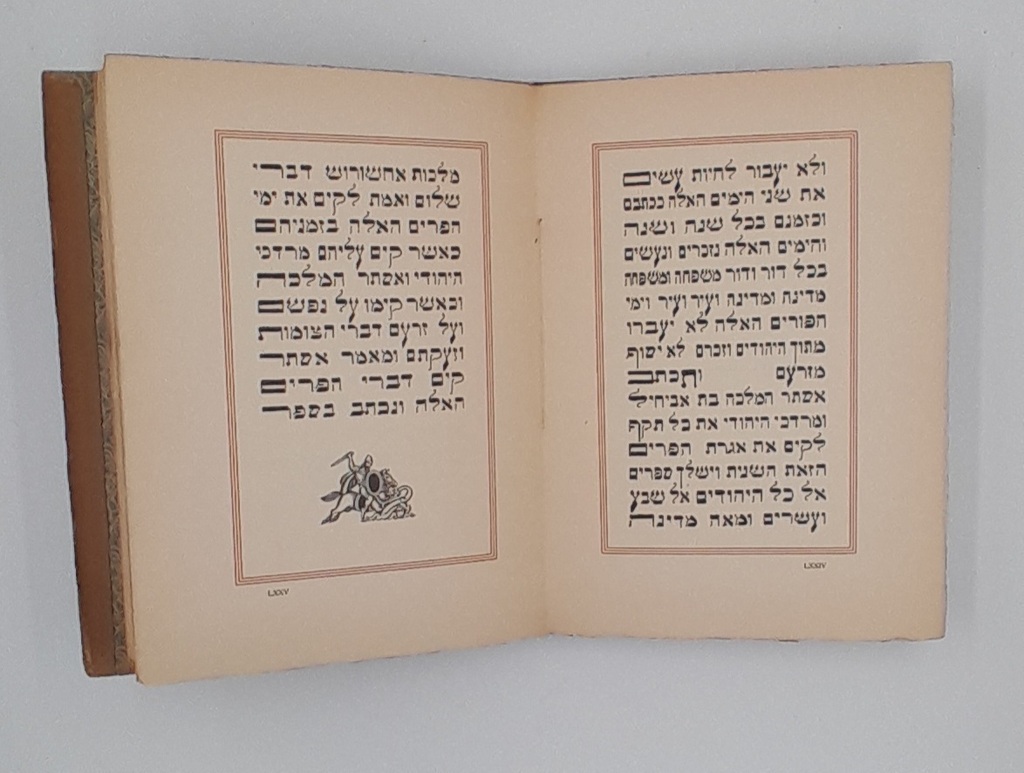 ולא יעבור להיות עשים
את שני הימים האלה ככתבם
וכזמנם בכל שנה ושנה
והימים האלה נזכרים ונעשים
בכל דור ודור משפחה ומשפחה
מדינה ומדינה ועיר ועיר וימי
הפורים האלה לא יעברו
מתוך היהודים וזכרם לא יסוף
מזרעם ותכתב
אסתר המלכה בת אביחיל
ומרדכי היהודי את כל תקף
לקים את אגרת הפרים
הזאת השנית וישלך ספרים
אל כל היהודים אל שבע
ועשרים ומאה מדינה
LXXIV
מלכות אחשורוש דברי
שלום ואמת לקים את ימי
הפרים האלה בזמניהם
כאשר קים עליהם מרדכי
היהודי ואסתר המלכה
וכאשר קימו על נפשם
ועל זרעם דברי הצומות
וזעקתם ומאמר אסתר
קים דברי הפרים
האלה ונכתב בספר
LXXV